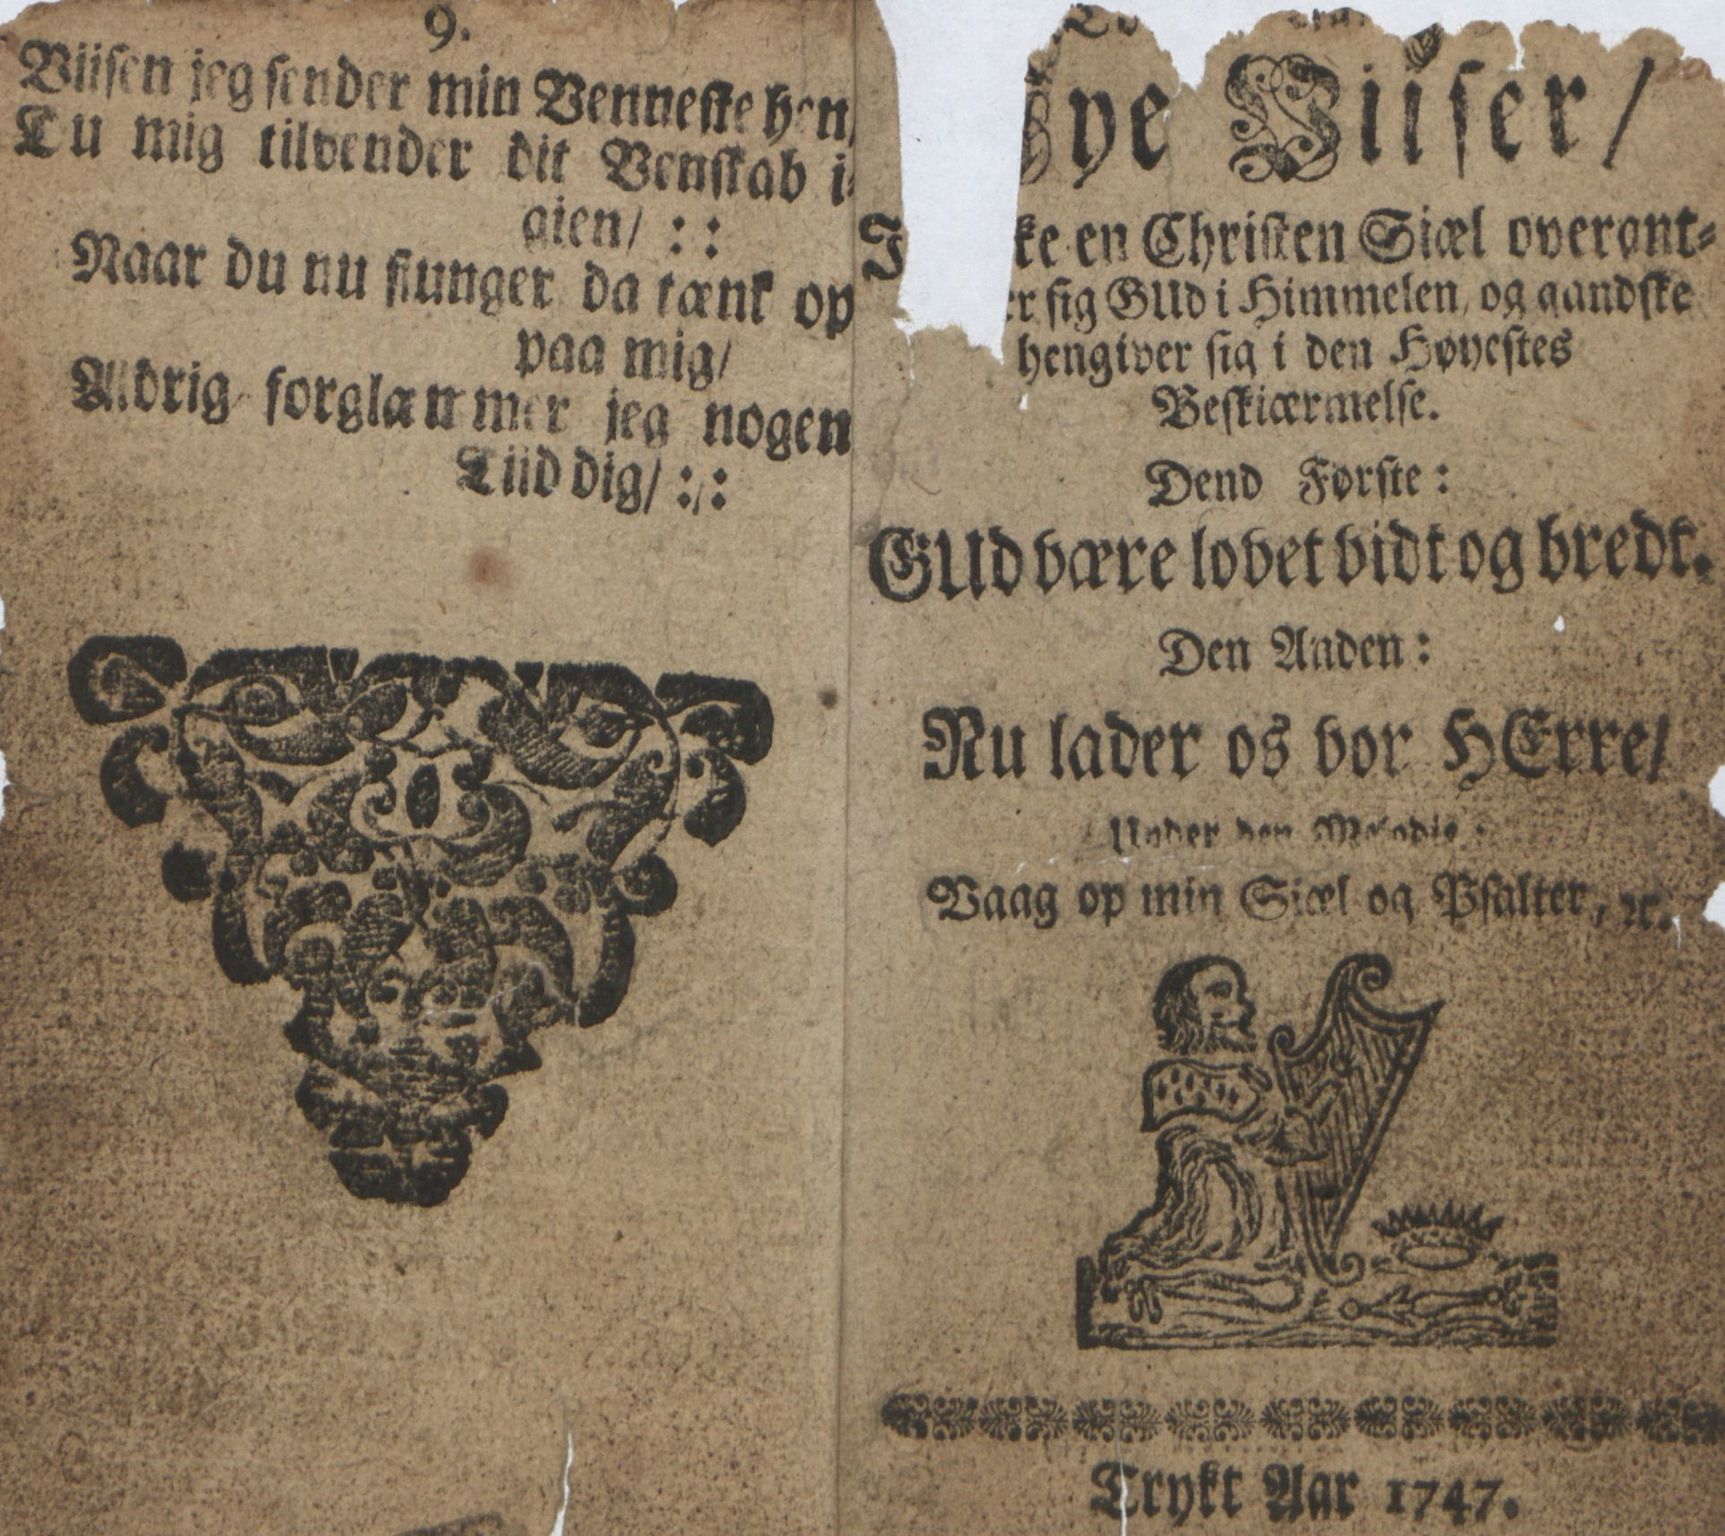 9.
Viisen jeg sender min Venneste hen/
Du mig tilvender dit Venskab i-
gien/ : :
Naar du nu siunger da tænk op
paa mig/
Aldrig forglemmer jeg nogen
Tiid dig/ :/:
Nye Viiser/
en Christen Siæl overant-
sig GUd i Himmelen, og gandske
hengiver sig i den Høyestes
Beskiærmelse.
Dend Første:
GUd være lovet vidt og bredt.
Den Anden:
Nu lader os vor HErre/
Under den Melodie:
Vaag op min Siæl og Psalter, ꝛc.
Trykt Aar 1747.